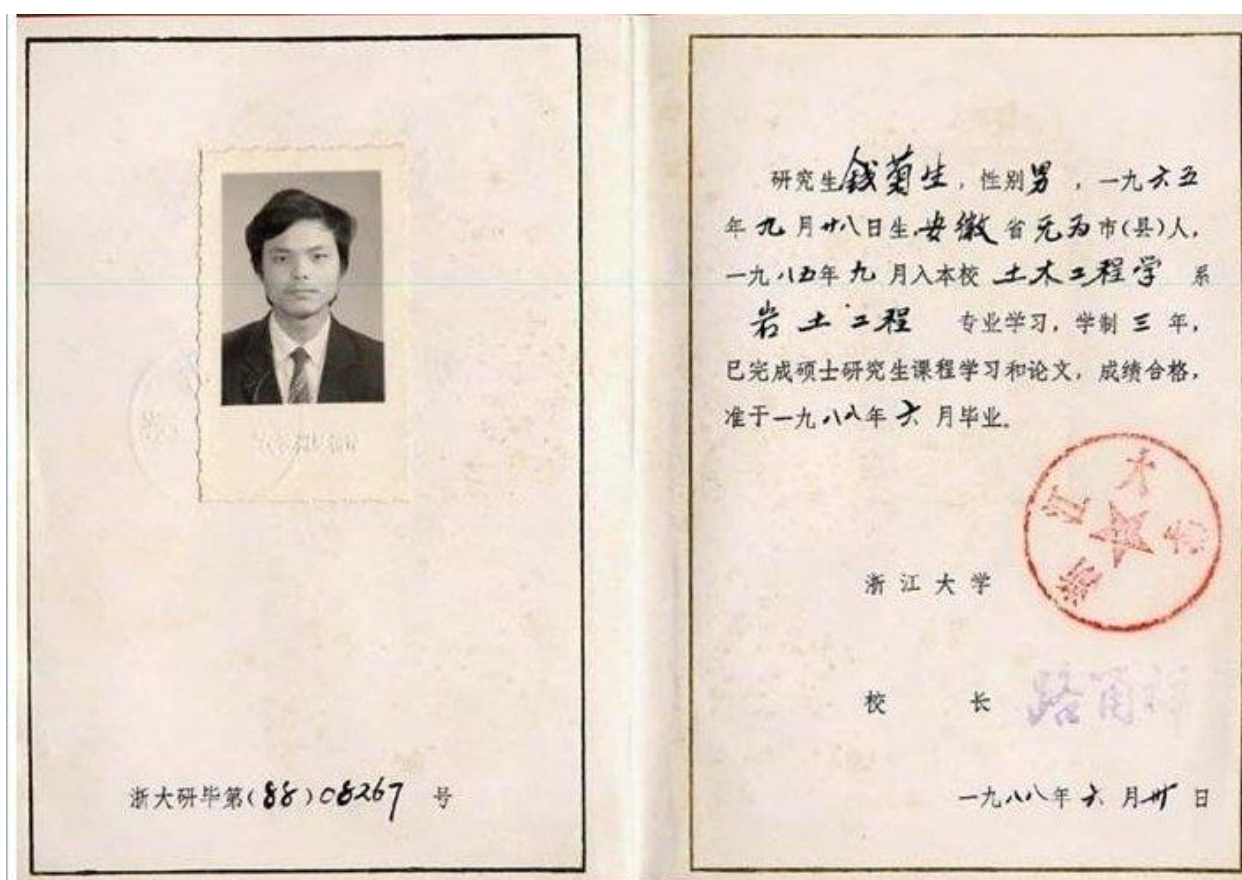 浙大研毕第(88)08267 号
研究生钱菊生，性别男，一九六五
年九月廿八日生安徽省无为市(县)人，
一九八五年九月入本校土木工程学系
岩土工程 专业学习，学制三年，
已完成硕士研究生课程学习和论文，成绩合格，
准于一九八八年六月毕业。
浙江大学
浙江大学
校 长 路甬祥
一九八八年六月卅日